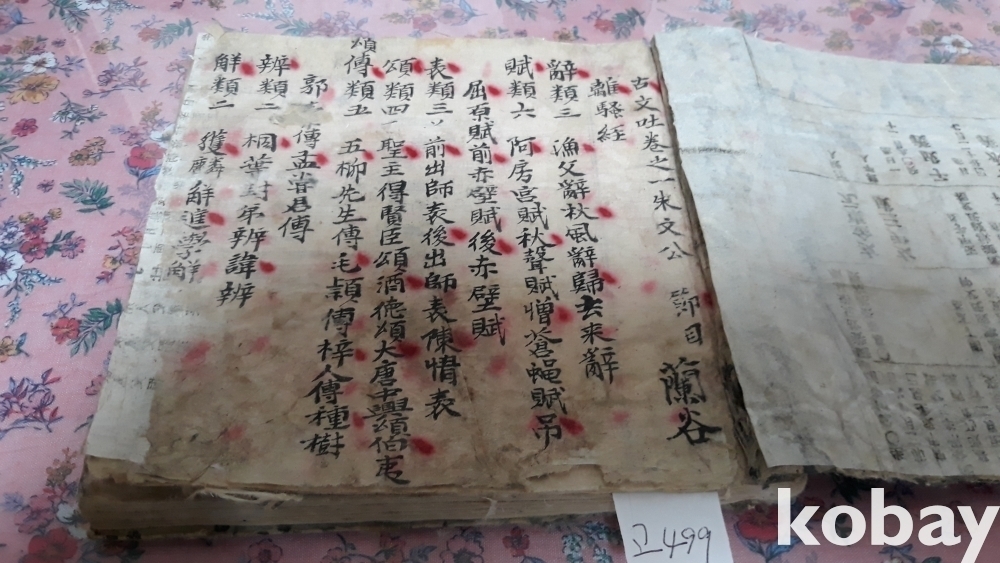 古文吐卷之一朱文公 節目 蘭谷
離騷經
辭類三 漁父辭秋風辭歸去来辭
賦類六 阿房宮賦秋聲賦憎蒼蝿賦吊
屈原賦前赤壁賦後赤壁賦
表類三 前出師表後出師表陳情表
頌類四 聖主得賢臣頌酒德頌大唐中興頌伯夷
頌
傳類五 五柳先生傳毛穎傳梓人傳種樹
郭 傳孟嘗君傳
辨類二 桐葉封弟辨諱辨
解類二 獲麟解進學解
고499
kobay